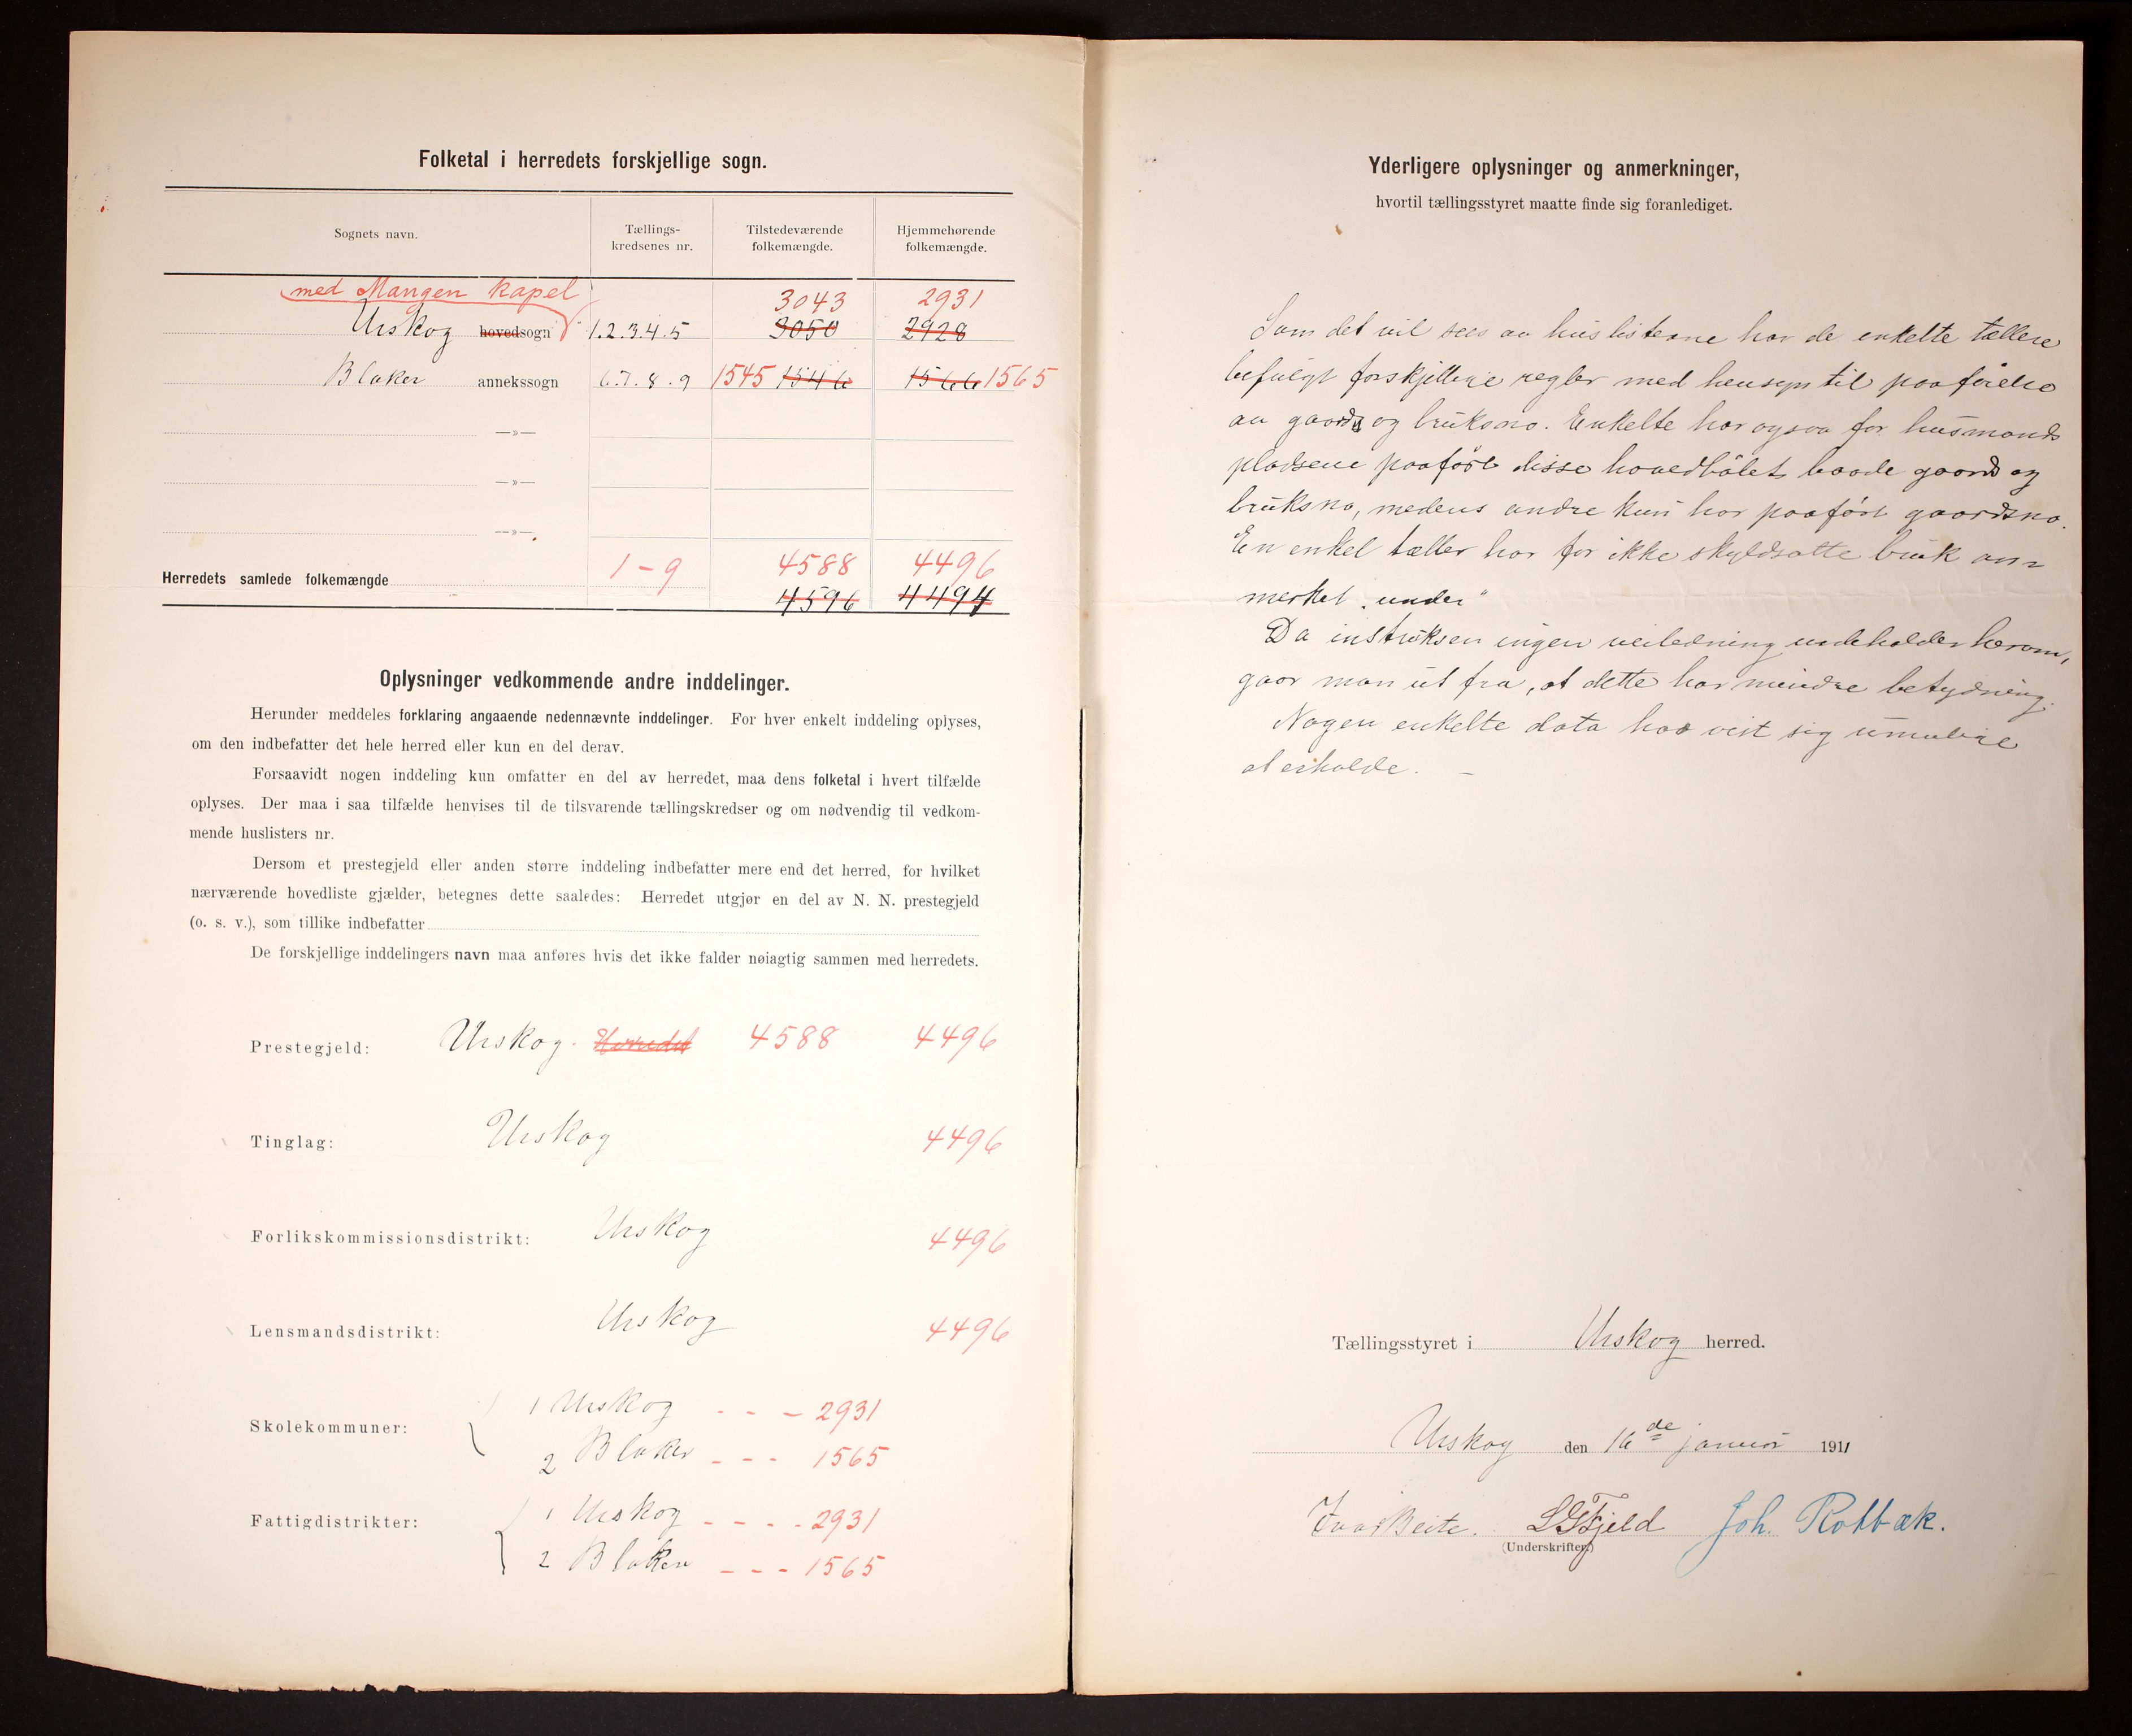 Folketal i herredets forskjellige sogn.
Sognets navn.
Tællings-
kredsenes nr.
Tilstedeværende
folkemængde.
Hjemmehørende
folkemængde.
med Mangen kapel
3043 2931
Urskog hovedsogn 1.2.3.4.5 3050 2928
Blaker annekssogn 6.7.8.9 1545 1546 1566 1565
—»—
—»—
—»—
1-9 4588 4496
Herredets samlede folkemængde
4596 4494
Oplysninger vedkommende andre inddelinger.
Herunder meddeles forklaring angaaende nedennævnte inddelinger. For hver enkelt inddeling oplyses,
om den indbefatter det hele herred eller kun en del derav.
Forsaavidt nogen inddeling kun omfatter en del av herredet, maa dens folketal i hvert tilfælde
oplyses. Der maa i saa tilfælde henvises til de tilsvarende tællingskredser og om nødvendig til vedkom-
mende huslisters nr.
Dersom et prestegjeld eller anden større inddeling indbefatter mere end det herred, for hvilket
nærværende hovedliste gjælder, betegnes dette saaledes: Herredet utgjør en del av N. N. prestegjeld
(o. s. v.), som tillike indbefatter
De forskjellige inddelingers navn maa anføres hvis det ikke falder nøiagtig sammen med herredets.
Prestegjeld: Urskog. Herredet 4588 4496
Tinglag: Urskog 4496
Forlikskommissionsdistrikt: Urskog 4496
Lensmandsdistrikt: Urskog 4496
1 Urskog - - - 2931
Skolekommuner:
2 Blaker - - - 1565
Fattigdistrikter: 1 Urskog - - - - 2931
2 Blaker - - - 1565
Yderligere oplysninger og anmerkninger,
hvortil tællingsstyret maatte finde sig foranlediget.
Som det vil sees av huslisterne har de enkelte tællere
befulgt forskjellige regler med hensyn til paaførelse
av gaards og bruksno. Enkelte har ogsaa for husmands
pladsene paaført disse hovedbølets baade gaards og
bruksno, medens andre kun har paaført gaardsno.
En enkel tæller har for ikke skyldsatte bruk an=
merket „under"
Da instruksen ingen veiledning indeholder herom,
gaar man ut fra, at dette har mindre betydning.
Nogen enkelte data har vist sig umulige
at erholde. —
Tællingsstyret i Urskog herred.
Urskog den 16de januar 1911
Ivar Beite. LGFjeld Joh. Rotbæk.
(Underskrifter.)